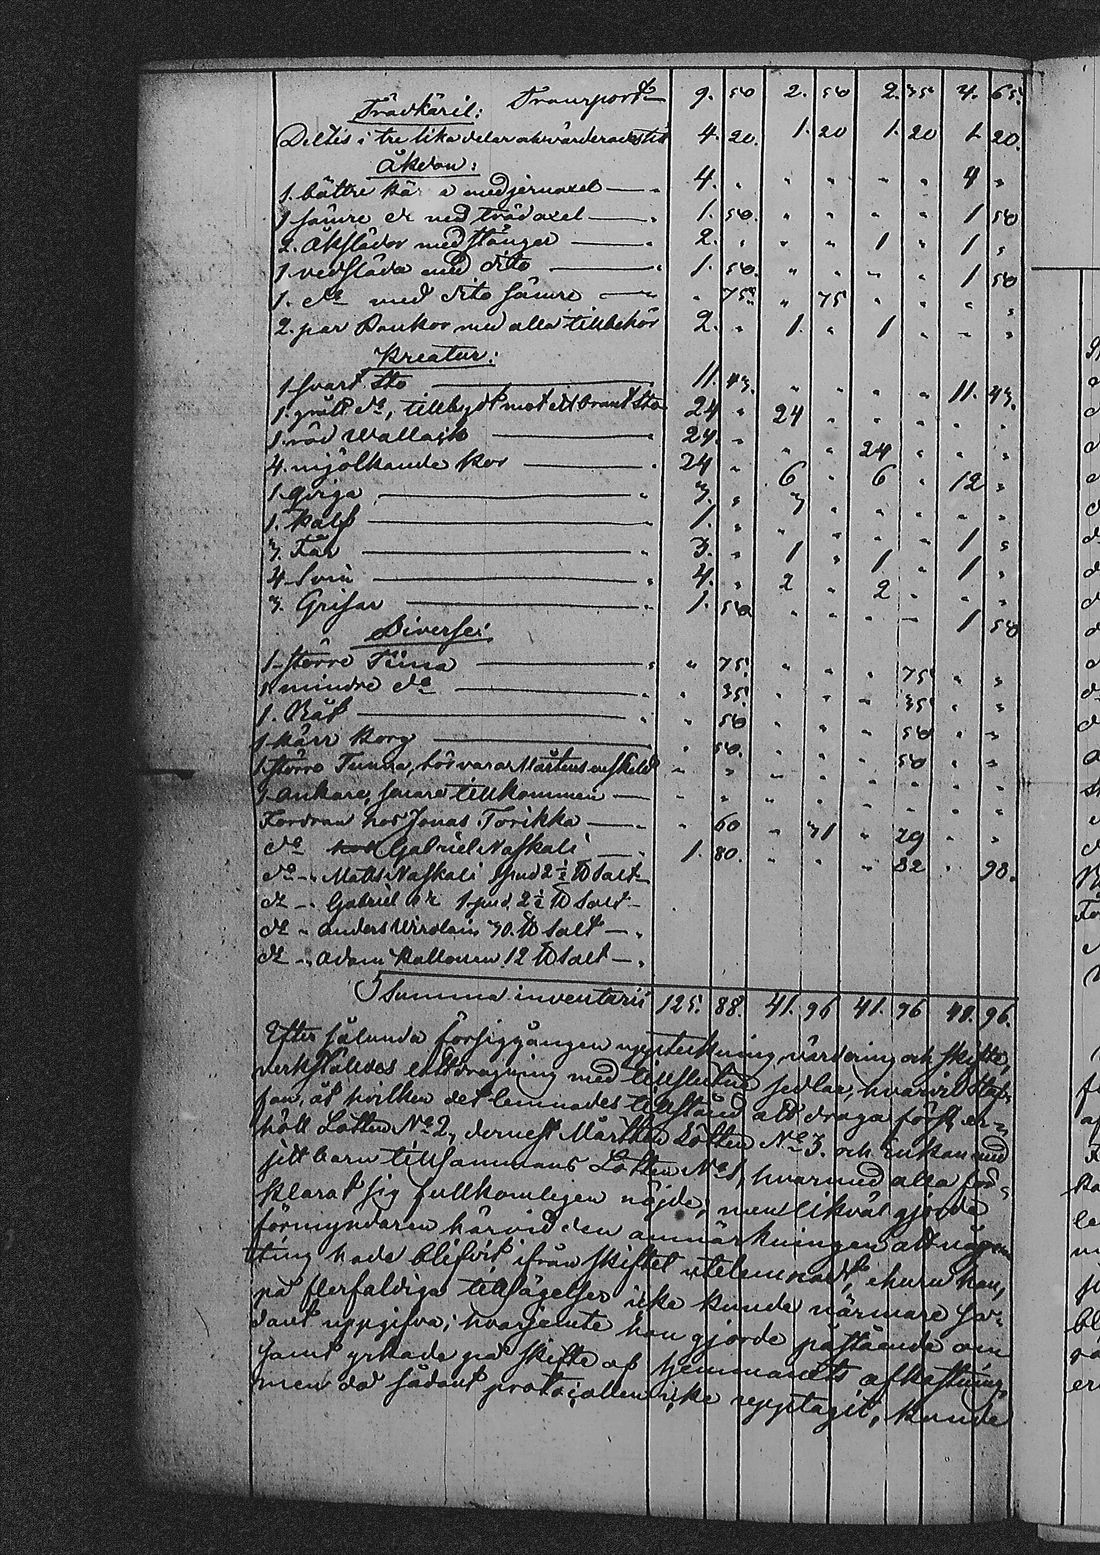 Transport 9. 50 2. 50 2. 35 4. 65.
Trädkäril:
Deltes i tre lika delar och värderades till 4. 20. 1. 20 1. 20 1. 20.
Åkdon:
1. bättre kärra med jernaxel — 4. " " " " " 4 "
1 sämre do med trädaxel — 1. 50. " " " " 1 50
2. Åkslädor med stänger — 2. " " " 1 " 1 "
1. vedsläda med dito — 1. 50. " " " " 1 50
1. do med dito sämre — " 75. " 75 " " " "
2. par Bankor med alla tillbehör 2. " 1. " 1 " " "
Kreatur:
1 svart Sto — 11. 43. " " " " 11. 43.
1. grått do, tillbydt mot ett brunt Sto 24 " 24 " " " " "
1. röd Wallack — 24. " " " 24 " " "
4. mjölkande Kor — 24 " 6 " 6 " 12 "
1. qviga — 3. " 3 " " " " "
1. Kalf — 1. " " " " " 1 "
3. Får — 3. " 1 " 1 " 1 "
4 Svin — 4. " 2 " 2 " " "
3. Grisar — 1. 50 " " " " 1 50
Diverse:
1 större Tina — " 75. " " " 75 " "
1 mindre do — " 35. " " " 35 " "
1. Båt — " 50 " " " 50 " "
1 kärr Korg — " 50. " " " 50 " "
1. större Tunna, hör varar Mårtens enskeld " " " " " " " "
1 ankare, senare tillkommen — " " " " " " " "
Fordran hos Jonas Torikka — " 60 " 31 " 29 " "
do hos Gabriel Naskali — 1. 80. " " " 82 " 98.
do — Matts Naskali 1 pud 2 ½ ℔ Salt —
do — Gabriel do 1 pud 2 ½ ℔ Salt —
do — Anders 30. ℔ Salt —
do — Adam Kallonen 12 ℔ Salt —
Summa inventarii 125. 88. 41. 96 41. 96 41. 96.
Efter sålunda försiggången uppteckning, värdering och skifte,
verkställdes lottdragning med tillslutne sedlar, hvarvid Staf-
fan, åt hvilken det lemnades tillstånd att draga först, er-
höll Lotten No 2, dernest Mårthen Lotten No 3. och Enkan med
sitt barn tillsammans Lotten No 1, hvarmed alla för-
klarat sig fullkomligen nöjde, men likväl gjorde
förmyndaren härvid den anmärkningen att någon
ting hade blifvit ifrån skiftet utelemnadt, ehuru han,
på flerfaldiga tillsägelser icke kunde närmare så-
dant uppgifva; hvarjemte han gjorde påstående om
samt yrkade på skifte af hemmanets afkastning,
men då sådant protocollen icke upptagit, kunde